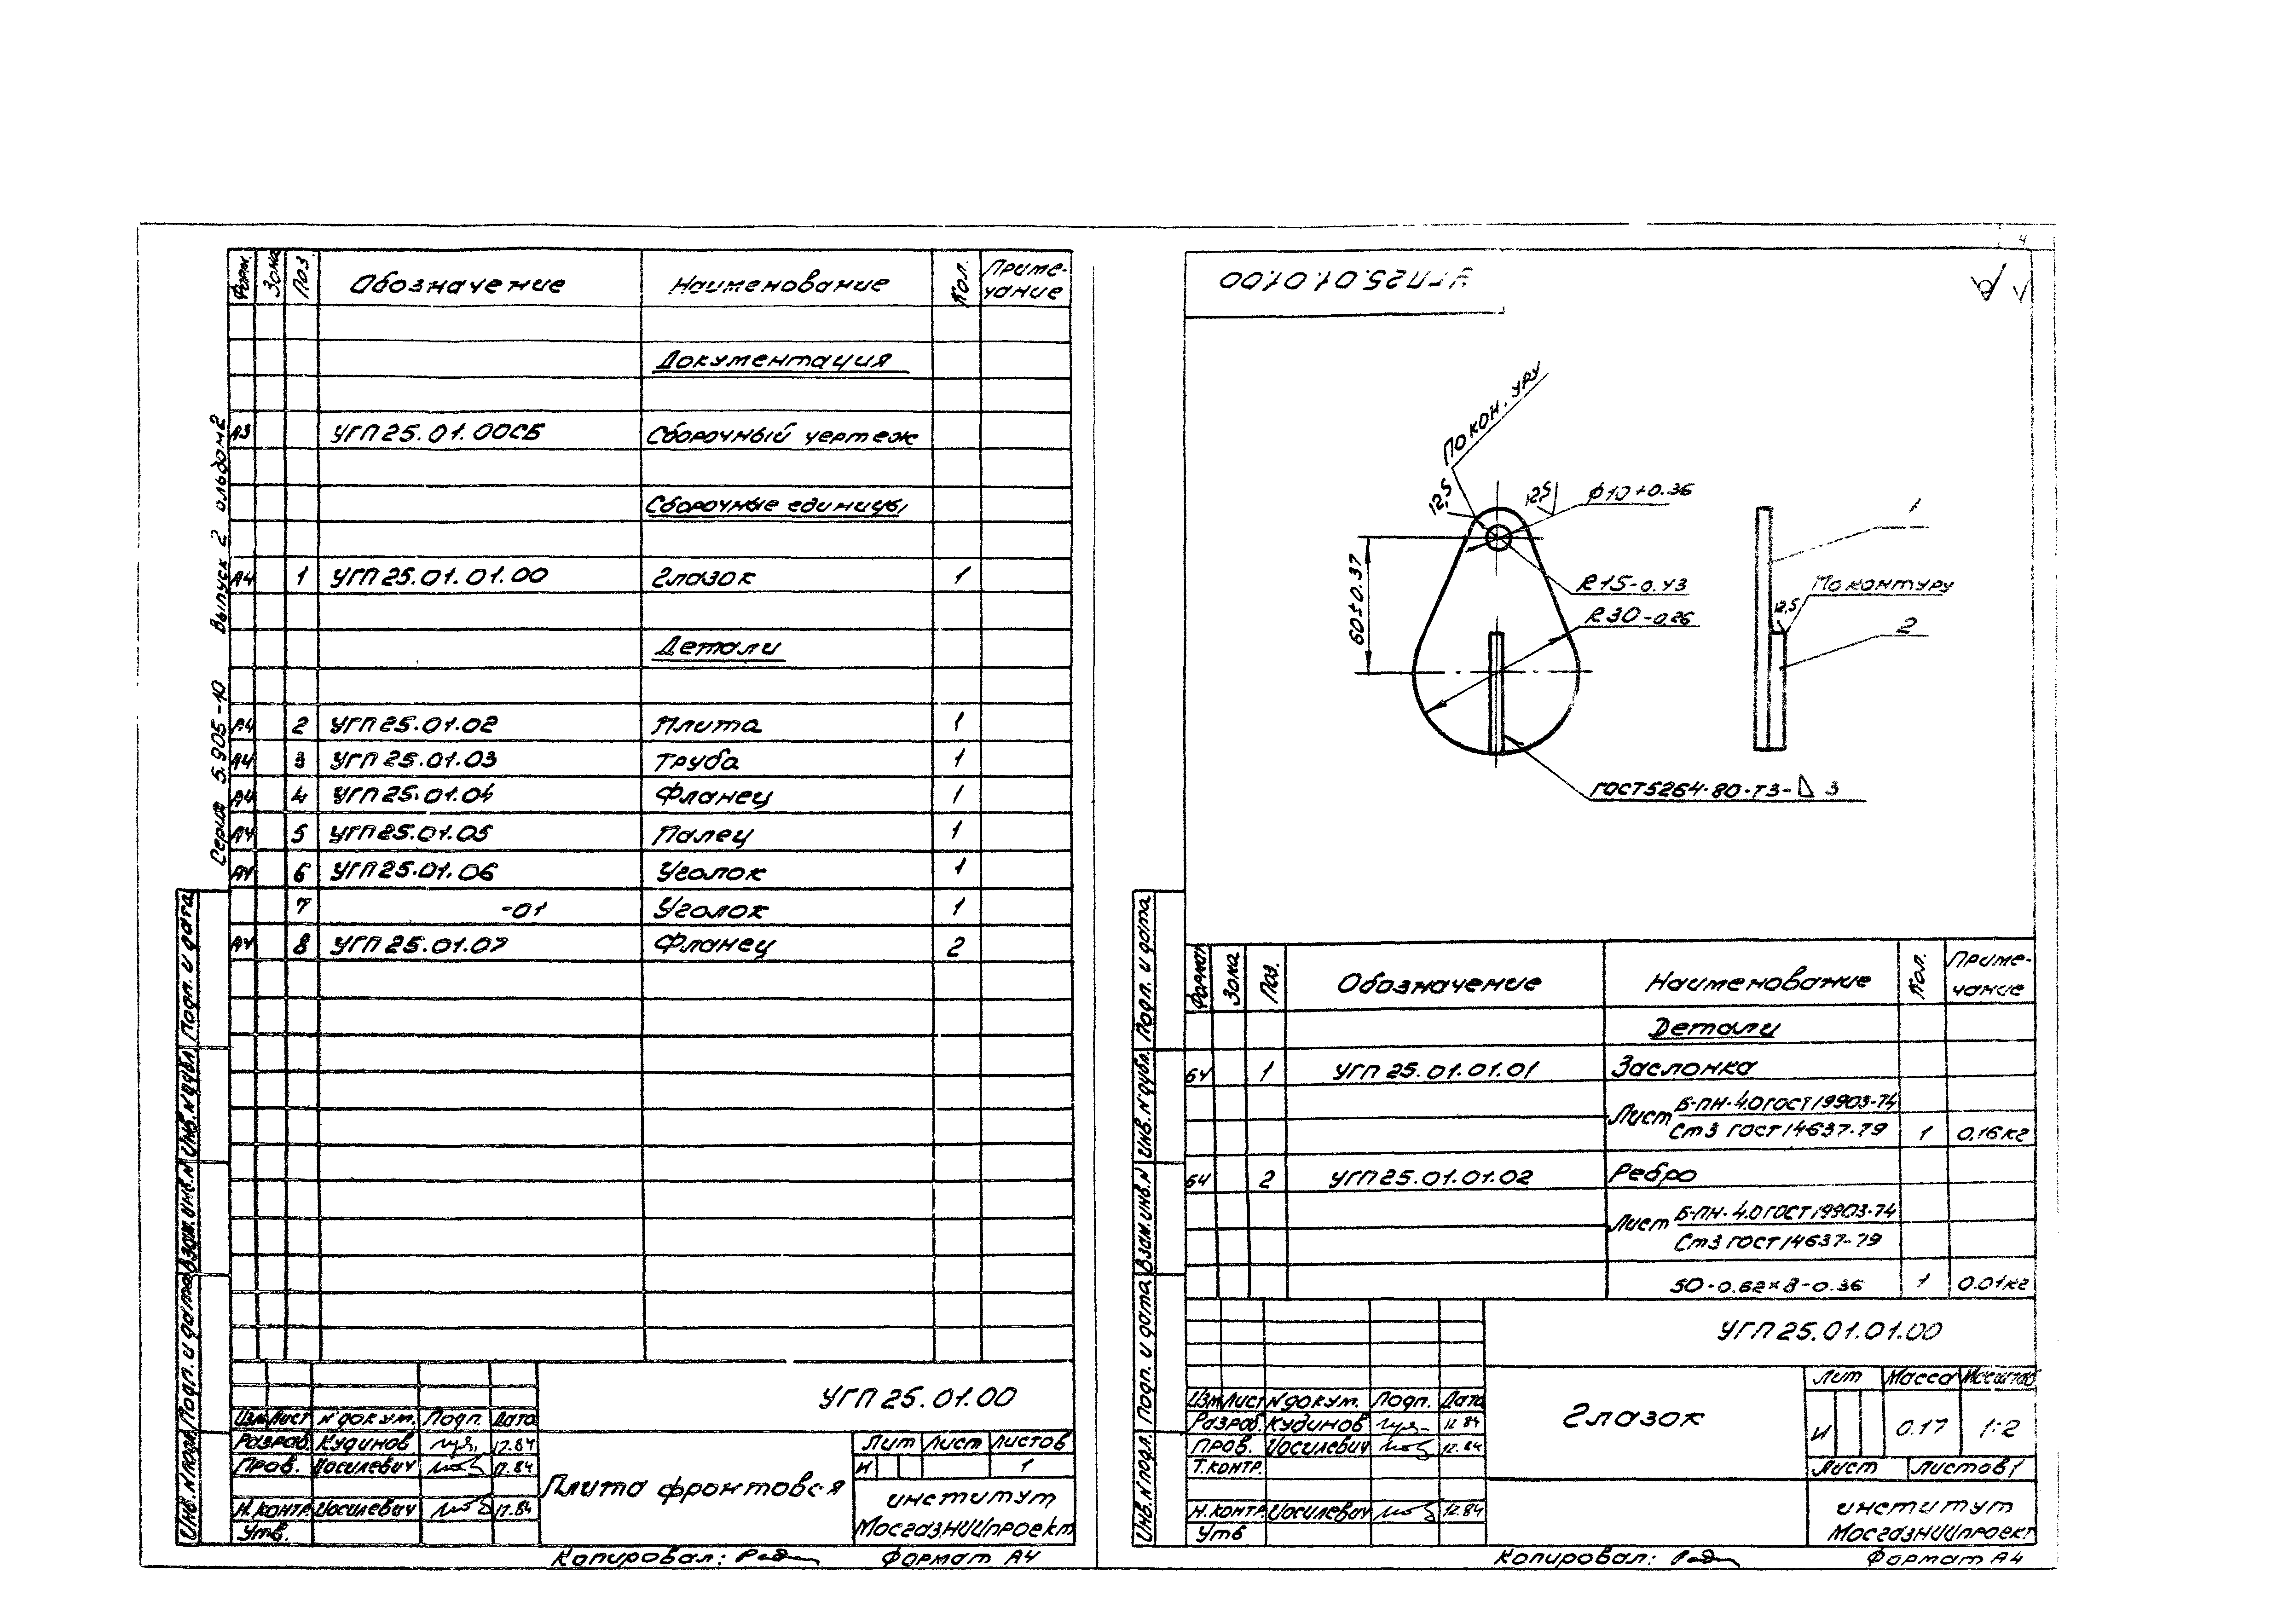 4
Серия 5.905-10 Выпуск 2 альбом 2
Форм. Зона Поз. Обозначение Наименование Кол. Приме-
чание
Документация
А3 УГП25.01.00СБ Сборочный чертеж
Сборочные единицы
А4 1 УГП25.01.01.00 Глазок 1
Детали
А4 2 УГП25.01.02 Плита 1
А4 3 УГП25.01.03 Труба 1
А4 4 УГП25.01.04 Фланец 1
А4 5 УГП25.01.05 Палец 1
А4 6 УГП25.01.06 Уголок 1
7 -01 Уголок 1
А4 8 УГП25.01.07 Фланец 2
Инв.Nподл. Подп. и дата Взам.инв.N Инв.Nдубл. Подп. и дата
УГП 25.01.00
Изм Лист N докум. Подп. Дата
Разраб. Кудинов 12.84
Пров. Иосилевич 12.84
Н.контр. Иосилевич 12.84
Утв.
Плита фронтовая
Лит Лист Листов
И 1
институт
МосгазНИИпроект
Копировал: Формат А4
УГП25.01.01.00
По кон.уру
12,5
12,5
φ10+0.36
60±0.37
R15-0.43
R30-0.26
ГОСТ5264-80-Т3-◺ 3
1
По контуру
12,5
2
Инв.Nподл. Подп. и дата Взам.инв.N Инв.Nдубл. Подп. и дата
Формат Зона Поз. Обозначение Наименование Кол. Приме-
чание
Детали
БЧ 1 УГП 25.01.01.01 Заслонка
Лист Б-ПН-4.0 ГОСТ19903-74
Ст3 ГОСТ14637-79 1 0,16кг
БЧ 2 УГП25.01.01.02 Ребро
Лист Б-ПН-4.0 ГОСТ19903-74
Ст3 ГОСТ14637-79
50-0.62×8-0.36 1 0.01кг
УГП25.01.01.00
Изм Лист N докум. Подп. Дата
Разраб. Кудинов 12.84
Пров. Иосилевич 12.84
Т.контр.
Н.контр. Иосилевич 12.84
Утв
Глазок
Лит Масса Масштаб
И 0.17 1:2
Лист Листов 1
институт
МосгазНИИпроект
Копировал: Формат А4